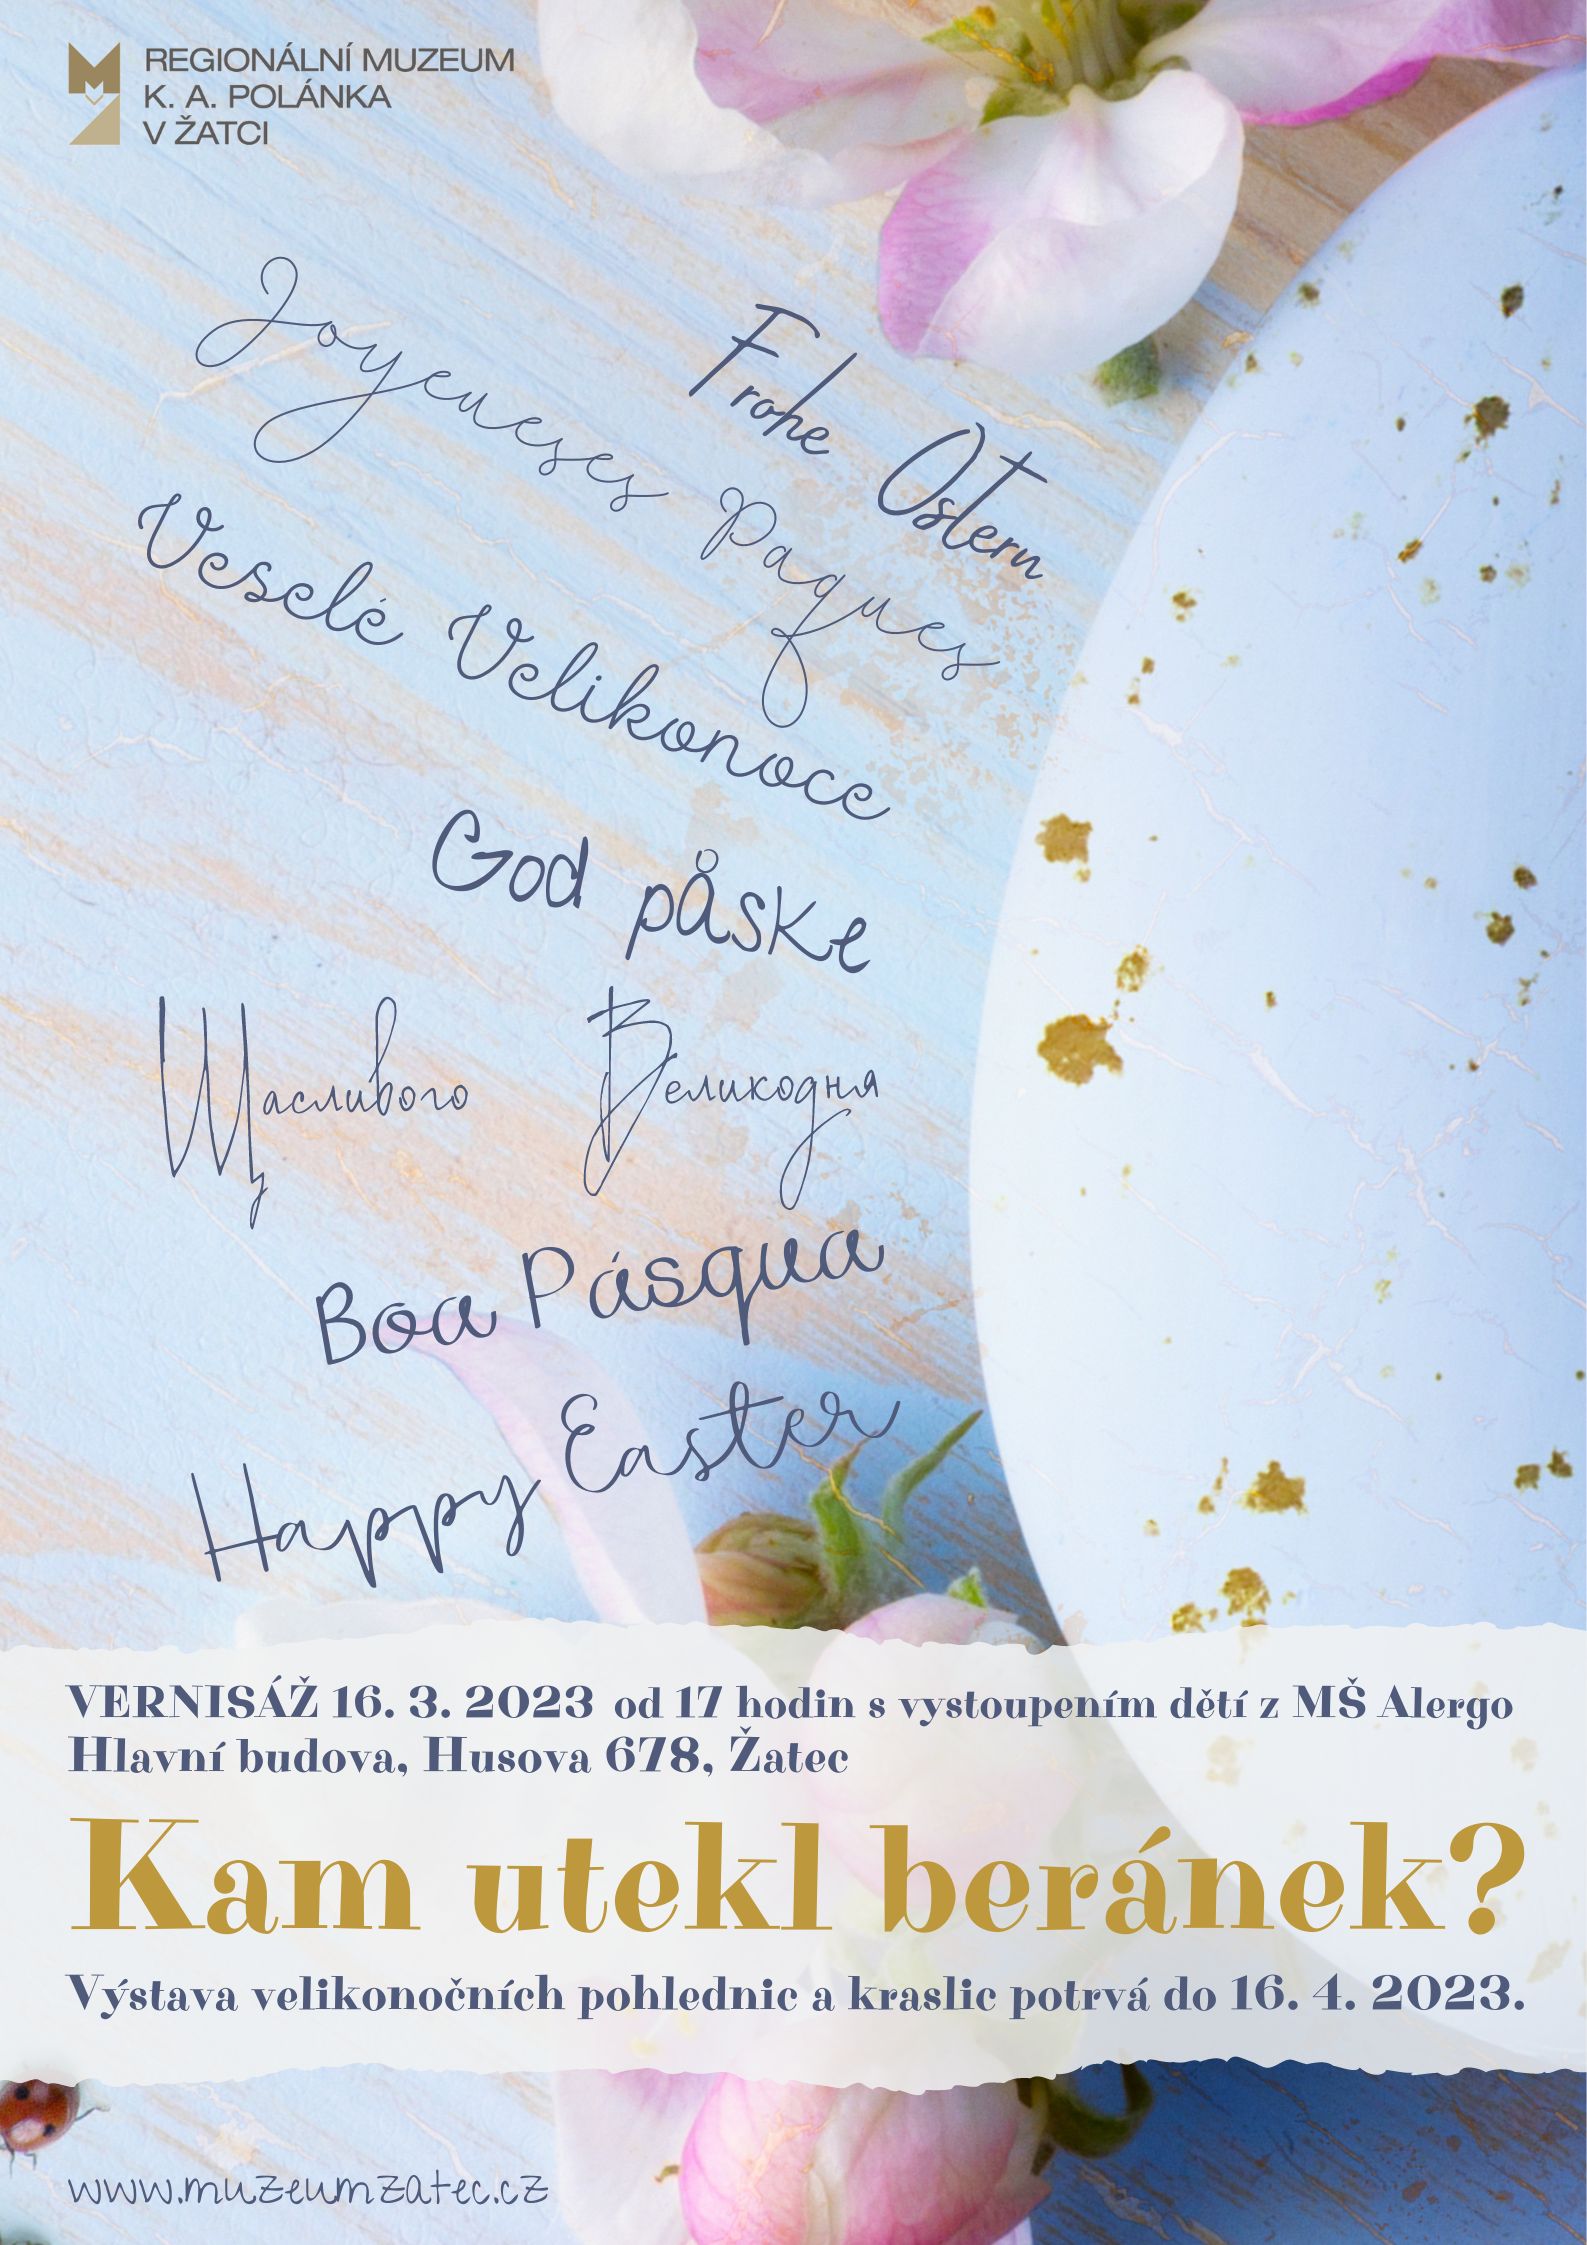 REGIONÁLNÍ MUZEUM
K. A. POLÁNKA
V ŽATCI
Frohe Ostern
Joyeuses Paques
Veselé Velikonoce
God påske
Щасливого Великодня
Boa Pásqua
Happy Easter
VERNISÁŽ 16. 3. 2023 od 17 hodin s vystoupením dětí z MŠ Alergo
Hlavní budova, Husova 678, Žatec
Kam utekl beránek?
Výstava velikonočních pohlednic a kraslic potrvá do 16. 4. 2023.
www.muzeumzatec.cz